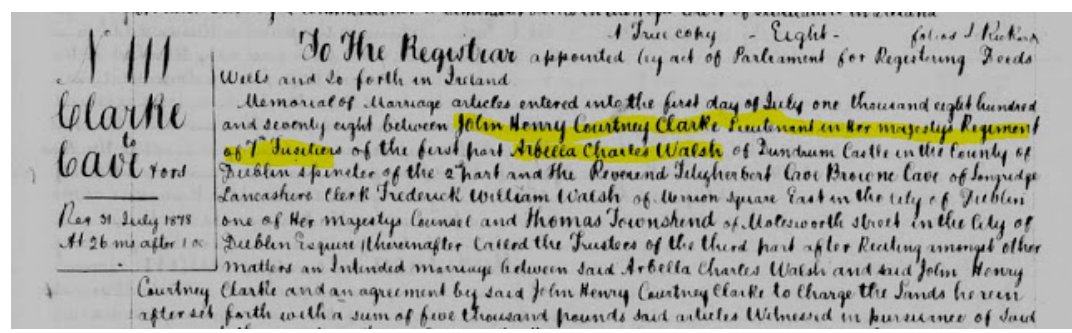 A True copy - Eight - folios J Rickins
No 111
To The Registrar appointed by act of Parliament for Registering Deeds
Wills and So forth in Ireland
Clarke
to
Cave & ors
Reg 31 July 1878
At 26 ms after 1 oc
Memorial of Marriage articles entered into the first day of July one thousand eight hundred
and seventy eight between John Henry Courtney Clarke Lieutenant in Her majestys Regiment
of 7th Fusiliers of the first part Arbella Charles Walsh of Dundrum Castle in the County of
Dublin spinster of the 2nd part and the Reverend Cave Browne Cave of Longridge
Lancashire Clerk Frederick William Walsh of Union Square East in the City of Dublin
one of Her majestys Counsel and Thomas Townshend of Molesworth Street in the City of
Dublin Esquire thereinafter Called the Trustees of the third part after Reciting amongst other
matters an Intended marriage between said Arbella Charles Walsh and said John Henry
Courtney Clarke and an agreement by said John Henry Courtney Clarke to Charge the Lands herein
after set forth with a sum of five thousand pounds said articles Witnessed in pursuance of said